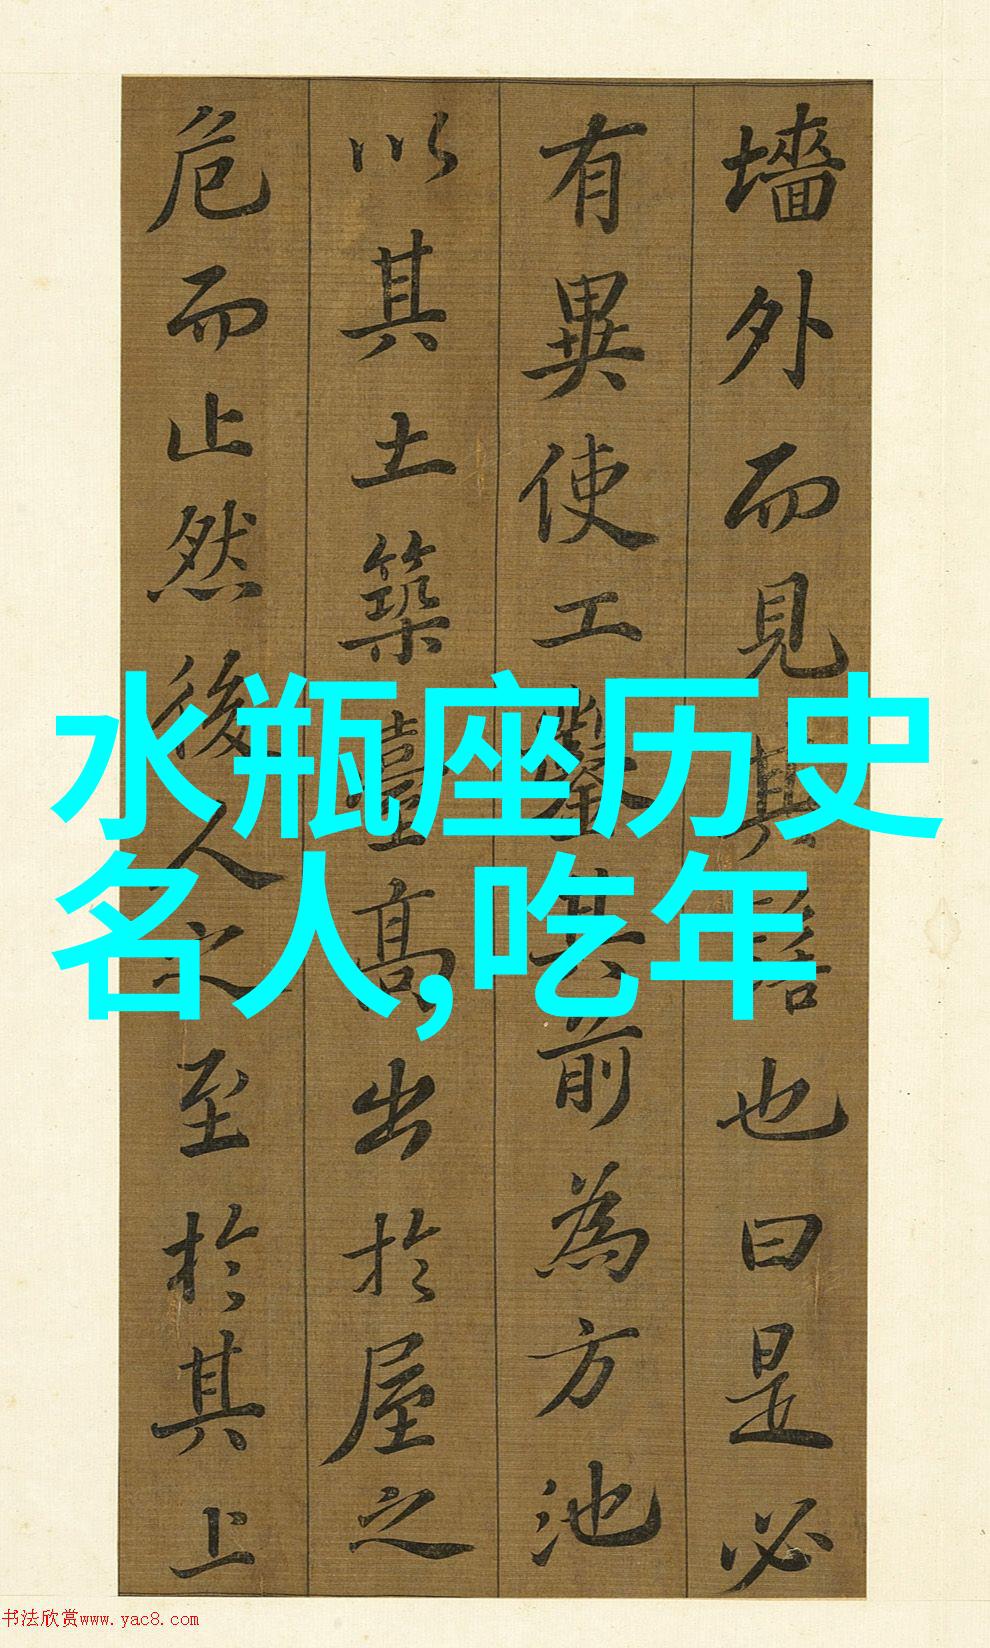 墻外而見其髻也曰是必
有異使工鑿其前為方池
以其土築臺高出於屋之
危而止然後人之至於其上
水瓶座历史
名人,吃年
书法欣赏www.yac8.com